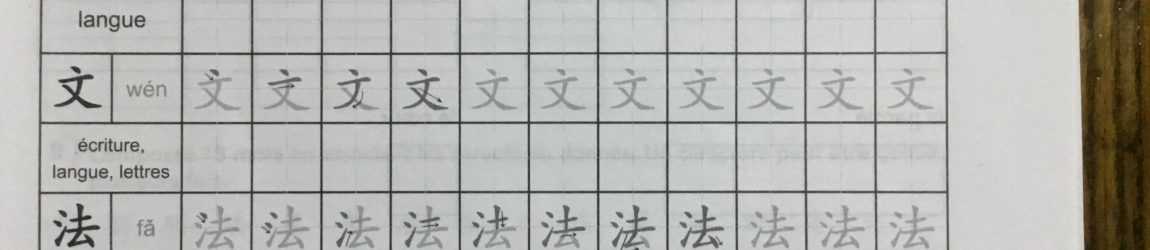 langue
文 wén 文 文 文 文 文 文 文 文 文 文 文
écriture,
langue, lettres
法 fǎ 法 法 法 法 法 法 法 法 法 法 法